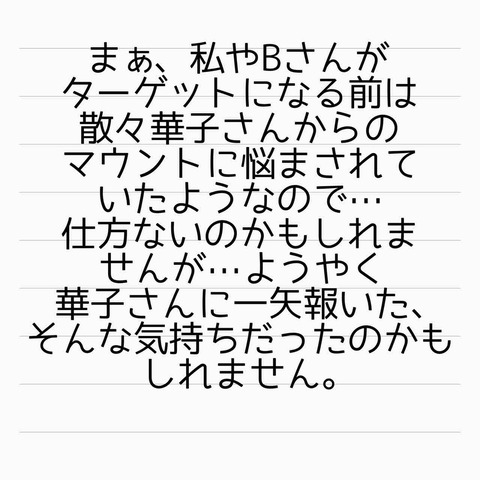 まぁ、私やBさんが
ターゲットになる前は
散々華子さんからの
マウントに悩まされて
いたようなので…
仕方ないのかもしれま
せんが…ようやく
華子さんに一矢報いた、
そんな気持ちだったのかも
しれません。